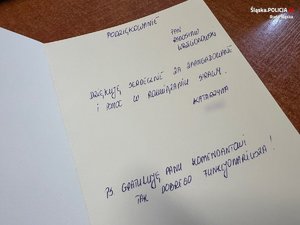 Śląska.POLICJA
Ruda Śląska
PODZIĘKOWANIE
PAN
DZIĘKUJĘ SERDECZNIE ZA ZAANGAŻOWANIE
I POMOC W ROZWIĄZANIU SPRAWY.
KATARZYNA
PS GRATULUJĘ PANU KOMENDANTOWI
TAK DOBREGO FUNKCJONARIUSZA!